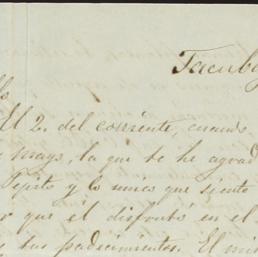 Tacuba
El 2. del corriente, cuando
Mayo, la que te he agrad
Pepito y lo unico que siento
que él disfrutó en el
y sus padecimientos. El mi